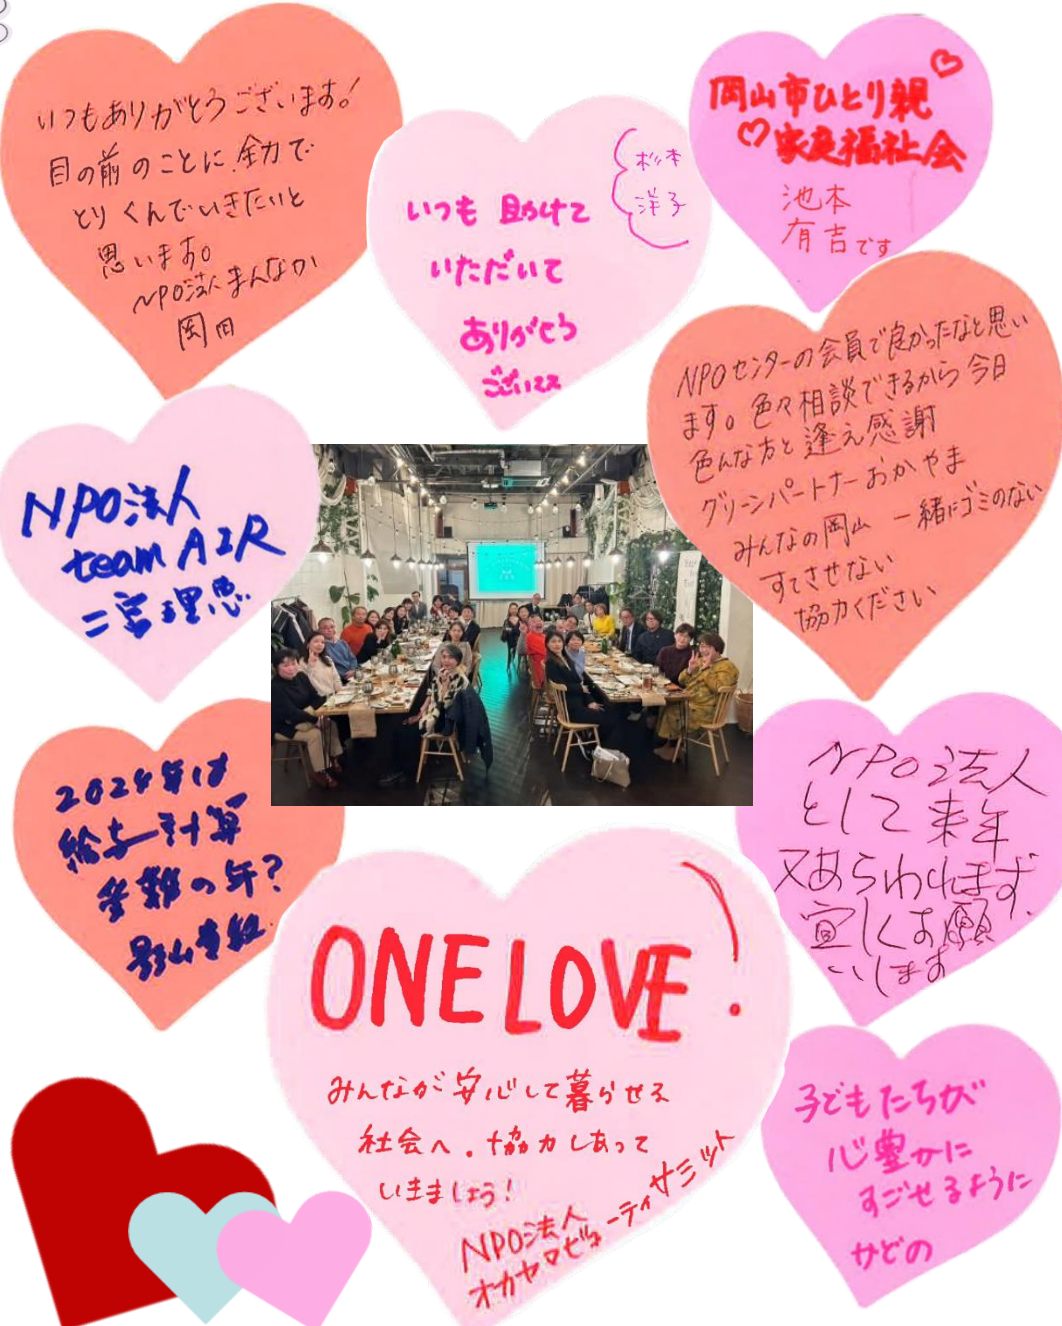 いつもありがとうございます!
目の前のことに全力で
とりくんでいきたいと
思います。
NPO法人まんなか
岡田
いつも助けて
いただいて
ありがとう
ございます
杉本
洋子
岡山市ひとり親
家庭福祉会
池本
有吉です
NPOセンターの会員で良かったなと思い
ます。色々相談できるから今日
色んな方と逢え感謝
グリーンパートナーおかやま
みんなの岡山 一緒にゴミのない
すてさせない
協力ください
NPO法人
team AIR
二宮理恵
2024年は
給与計算
受難の年?
影山貴敏
NPO法人
として来年
又あらわれます
宜しくお願
いします
ONE LOVE!
みんなが安心して暮らせる
社会へ。協力しあって
いきましょう!
NPO法人
オカヤマビューティサミット
子どもたちが
心豊かに
すごせるように
せどの